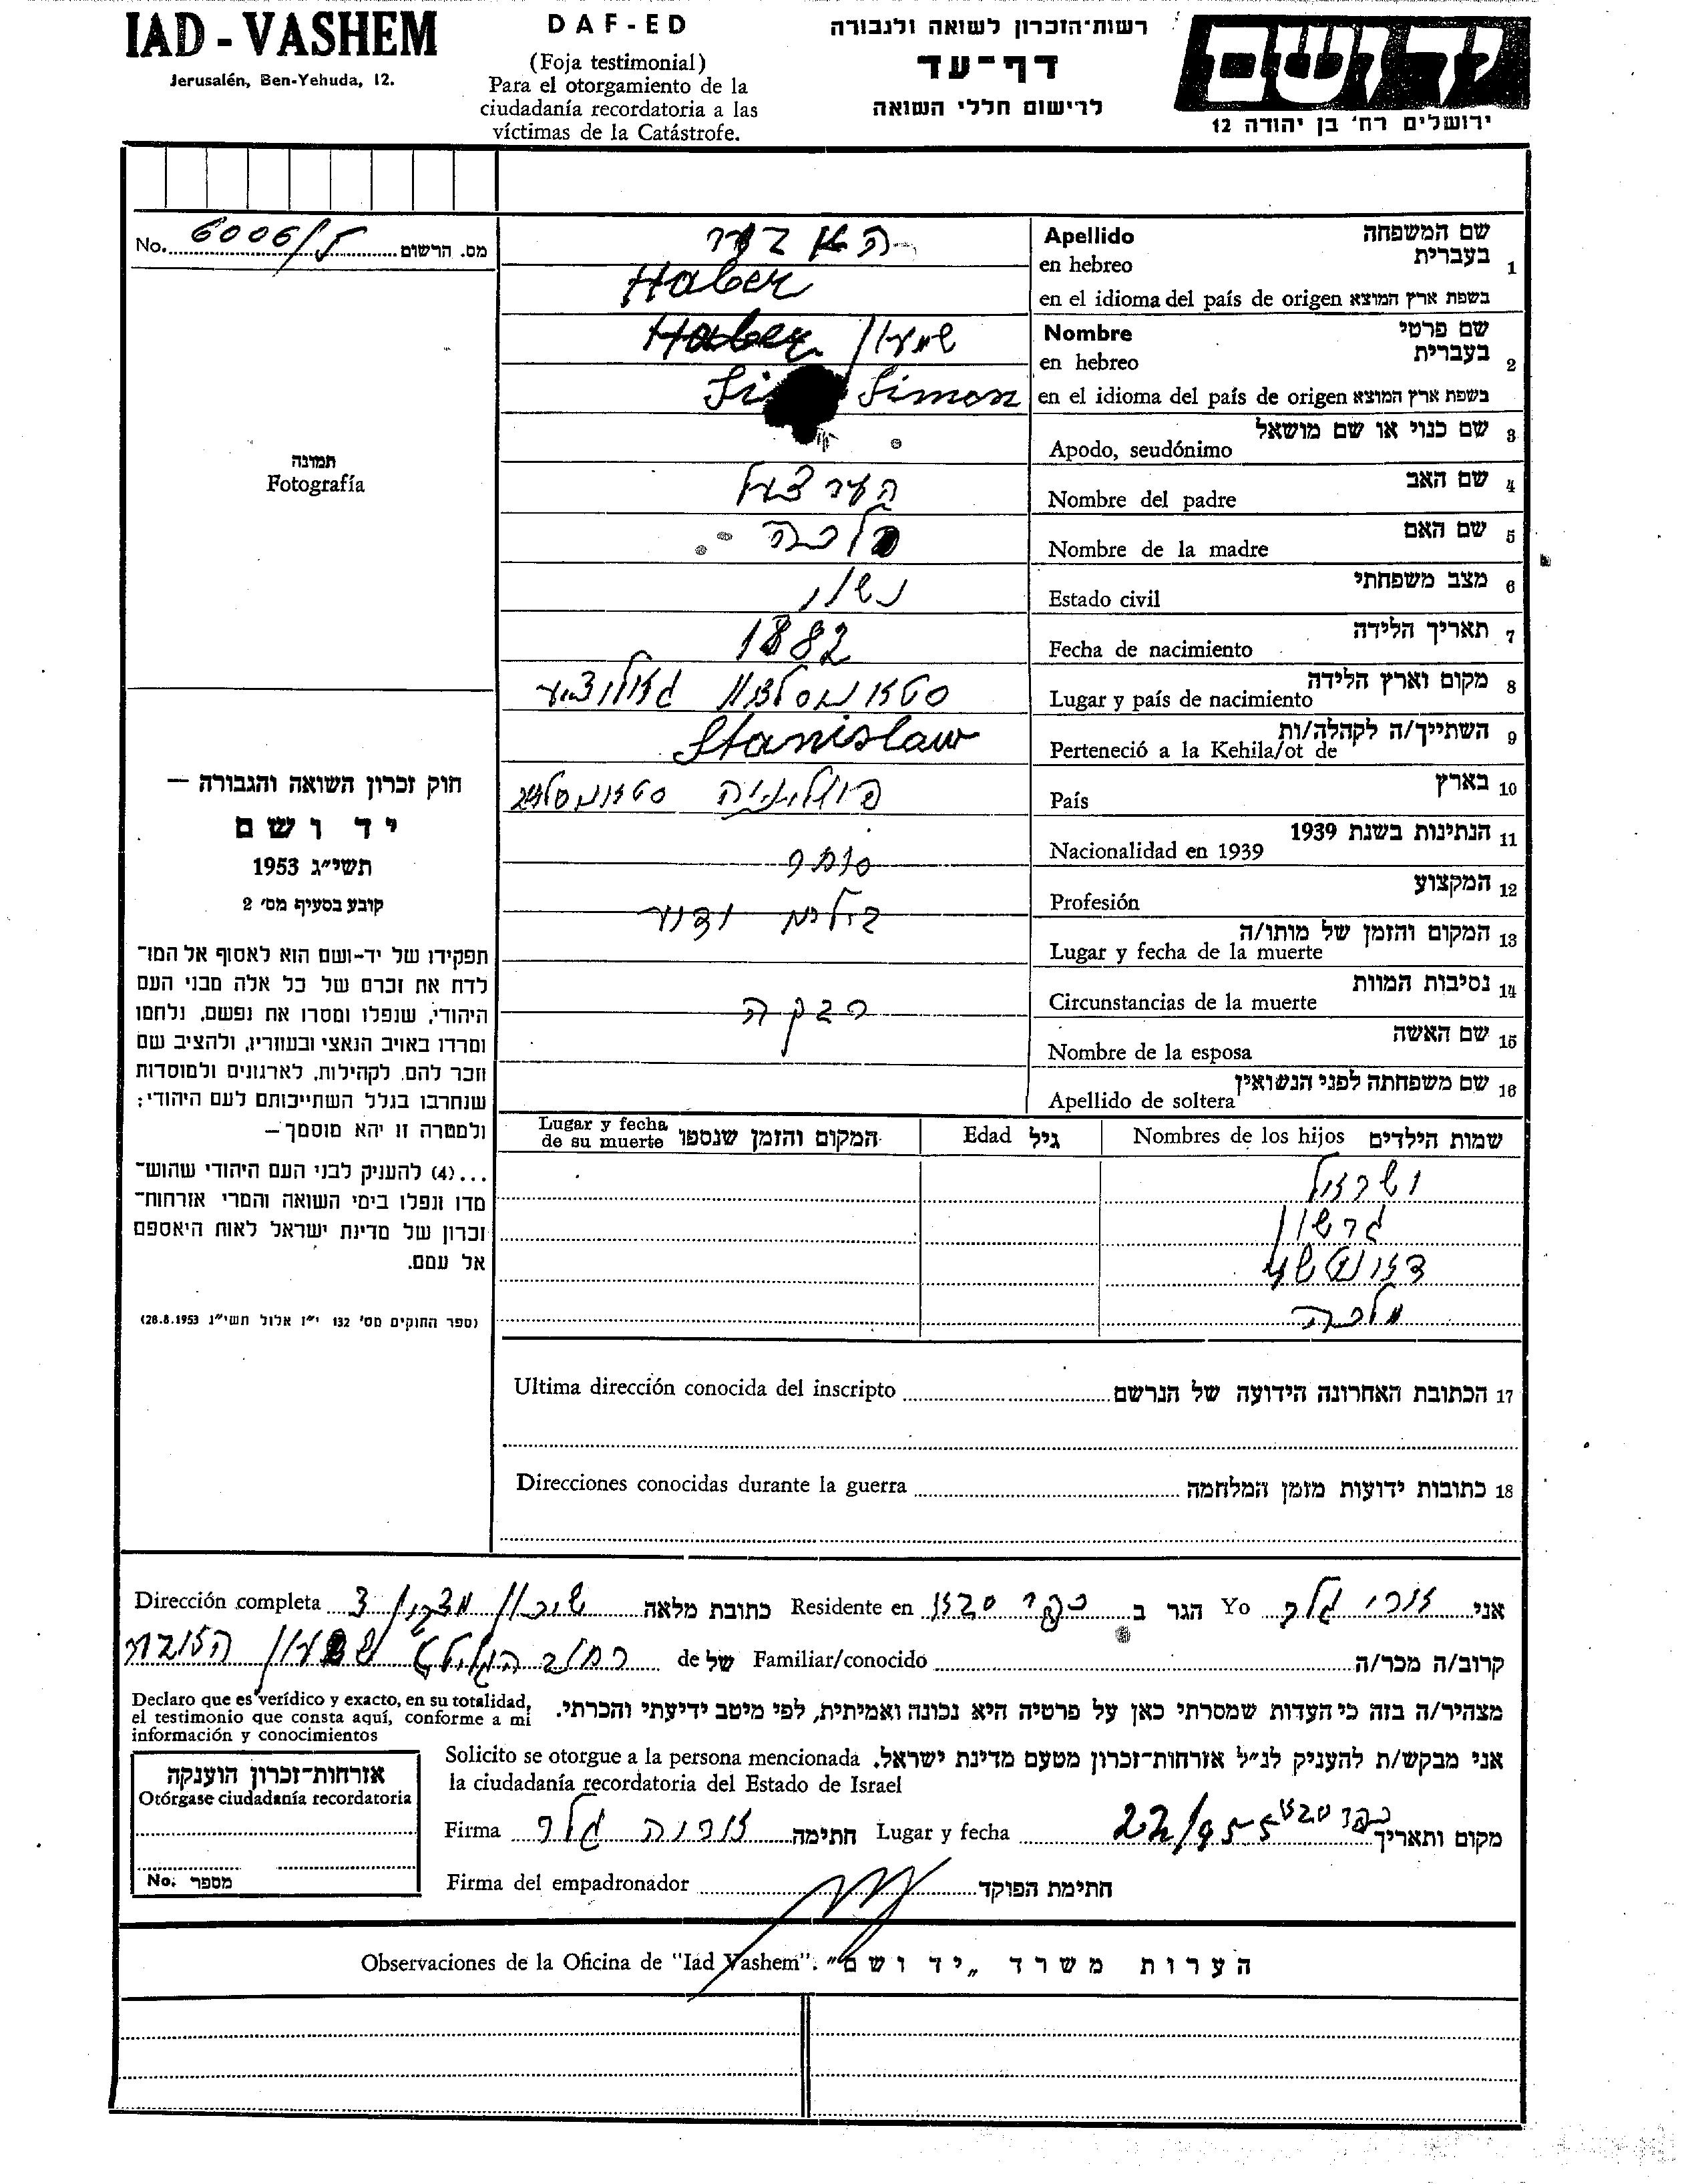 IAD - VASHEM
Jerusalén, Ben-Yehuda, 12.
DAF-ED
(Foja testimonial)
Para el otorgamiento de la
ciudadanía recordatoria a las
víctimas de la Catástrofe.
רשות־הזכרון לשואה ולגבורה
דף־עד
לרישום חללי השואה
יד ושם
ירושלים רח' בן יהודה 12
No. 6006/5 מס. הרשום
תמונה
Fotografía
חוק זכרון השואה והגבורה —
יד ושם
תשי״ג 1953
קובע בסעיף מס' 2
תפקידו של יד-ושם הוא לאסוף אל המו־
לדת את זכרם של כל אלה מבני העם
היהודי, שנפלו ומסרו את נפשם, נלחמו
ומרדו באויב הנאצי ובעוזריו, ולהציב שם
וזכר להם, לקהילות, לארגונים ולמוסדות
שנחרבו בגלל השתייכותם לעם היהודי;
ולמטרה זו יהא מוסמך —
...(4) להעניק לבני העם היהודי שהוש־
מדו ונפלו בימי השואה והמרי אזרחות־
זכרון של מדינת ישראל לאות היאספם
אל עמם.
(ספר החוקים מס' 132 י״ז אלול תשי״ג 28.8.1953)
האבער
Apellido שם המשפחה
en hebreo בעברית 1
Haber
en el idioma del país de origen בשפת ארץ המוצא
Haber שמעון
Nombre שם פרטי
en hebreo בעברית 2
Si Simon
en el idioma del país de origen בשפת ארץ המוצא
שם כנוי או שם מושאל 3
Apodo, seudónimo
הערצל
שם האב 4
Nombre del padre
מלכה
שם האם 5
Nombre de la madre
נשוי
מצב משפחתי 6
Estado civil
1882
תאריך הלידה 7
Fecha de nacimiento
מקום וארץ הלידה 8
Lugar y país de nacimiento
Stanislaw
השתייך/ה לקהלה/ות 9
Perteneció a la Kehila/ot de
פולניה
בארץ 10
País
הנתינות בשנת 1939 11
Nacionalidad en 1939
סוחר
המקצוע 12
Profesión
המקום והזמן של מותו/ה 13
Lugar y fecha de la muerte
נסיבות המוות 14
Circunstancias de la muerte
רבקה
שם האשה 15
Nombre de la esposa
שם משפחתה לפני הנשואין 16
Apellido de soltera
שמות הילדים Nombres de los hijos
גיל Edad
המקום והזמן שנספו Lugar y fecha de su muerte
ישראל
גרשון
מלכה
Ultima dirección conocida del inscripto הכתובת האחרונה הידועה של הנרשם 17
Direcciones conocidas durante la guerra כתובות ידועות מזמן המלחמה 18
אני Yo הגר ב כפר סבא Residente en כתובת מלאה שיכון Dirección completa
קרוב/ה מכר/ה Familiar/conocido של de רחוב שמעון
מצהיר/ה בזה כי העדות שמסרתי כאן על פרטיה היא נכונה ואמיתית, לפי מיטב ידיעתי והכרתי.
Declaro que es verídico y exacto, en su totalidad,
el testimonio que consta aquí, conforme a mi
información y conocimientos
אני מבקש/ת להעניק לנ״ל אזרחות־זכרון מטעם מדינת ישראל.
Solicito se otorgue a la persona mencionada
la ciudadanía recordatoria del Estado de Israel
מקום ותאריך כפר סבא 22/955 Lugar y fecha חתימה Firma
חתימת הפוקד Firma del empadronador
אזרחות־זכרון הוענקה
Otórgase ciudadanía recordatoria
No. מספר
Observaciones de la Oficina de "Iad Vashem". הערות משרד „יד ושם"